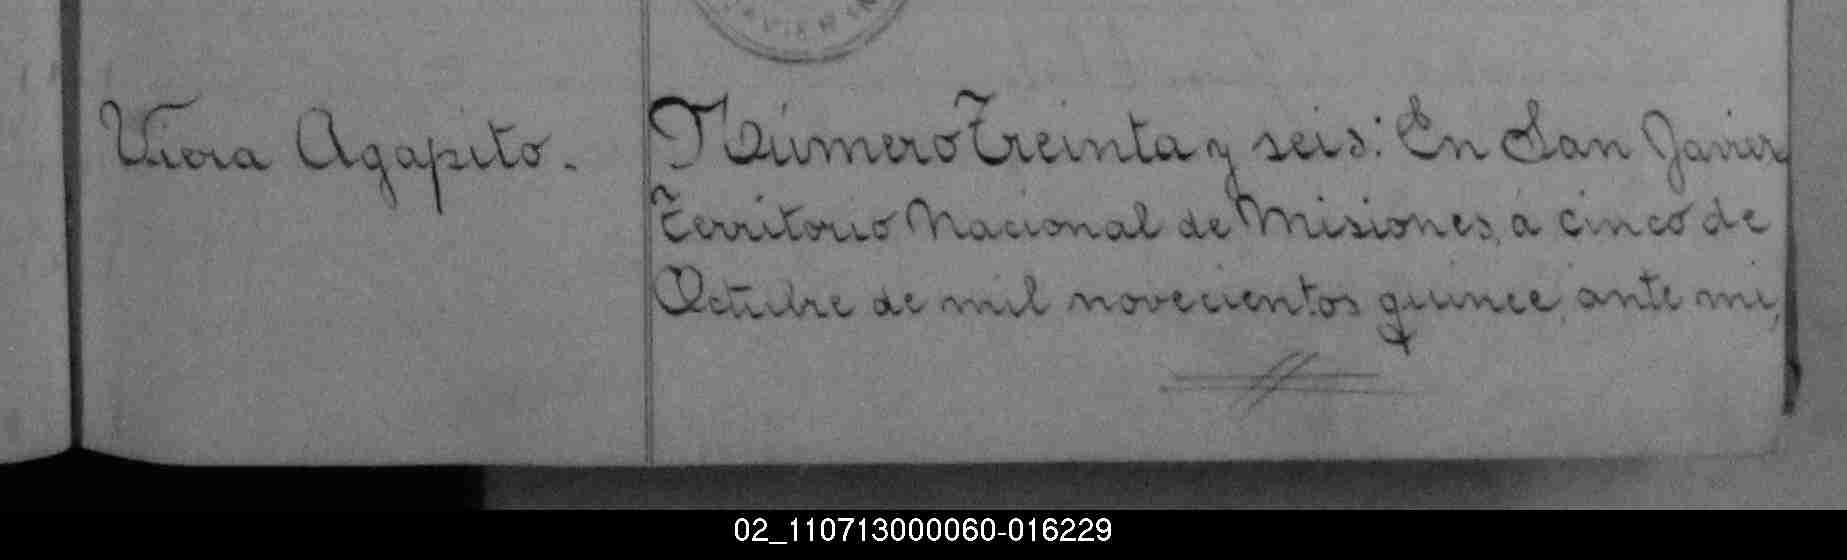 JAVIER
Viera Agapito.
Número Treinta y seis: En San Javier
Territorio Nacional de Misiones, á cinco de
Octubre de mil novecientos quince, ante mi,
02_110713000060-016229